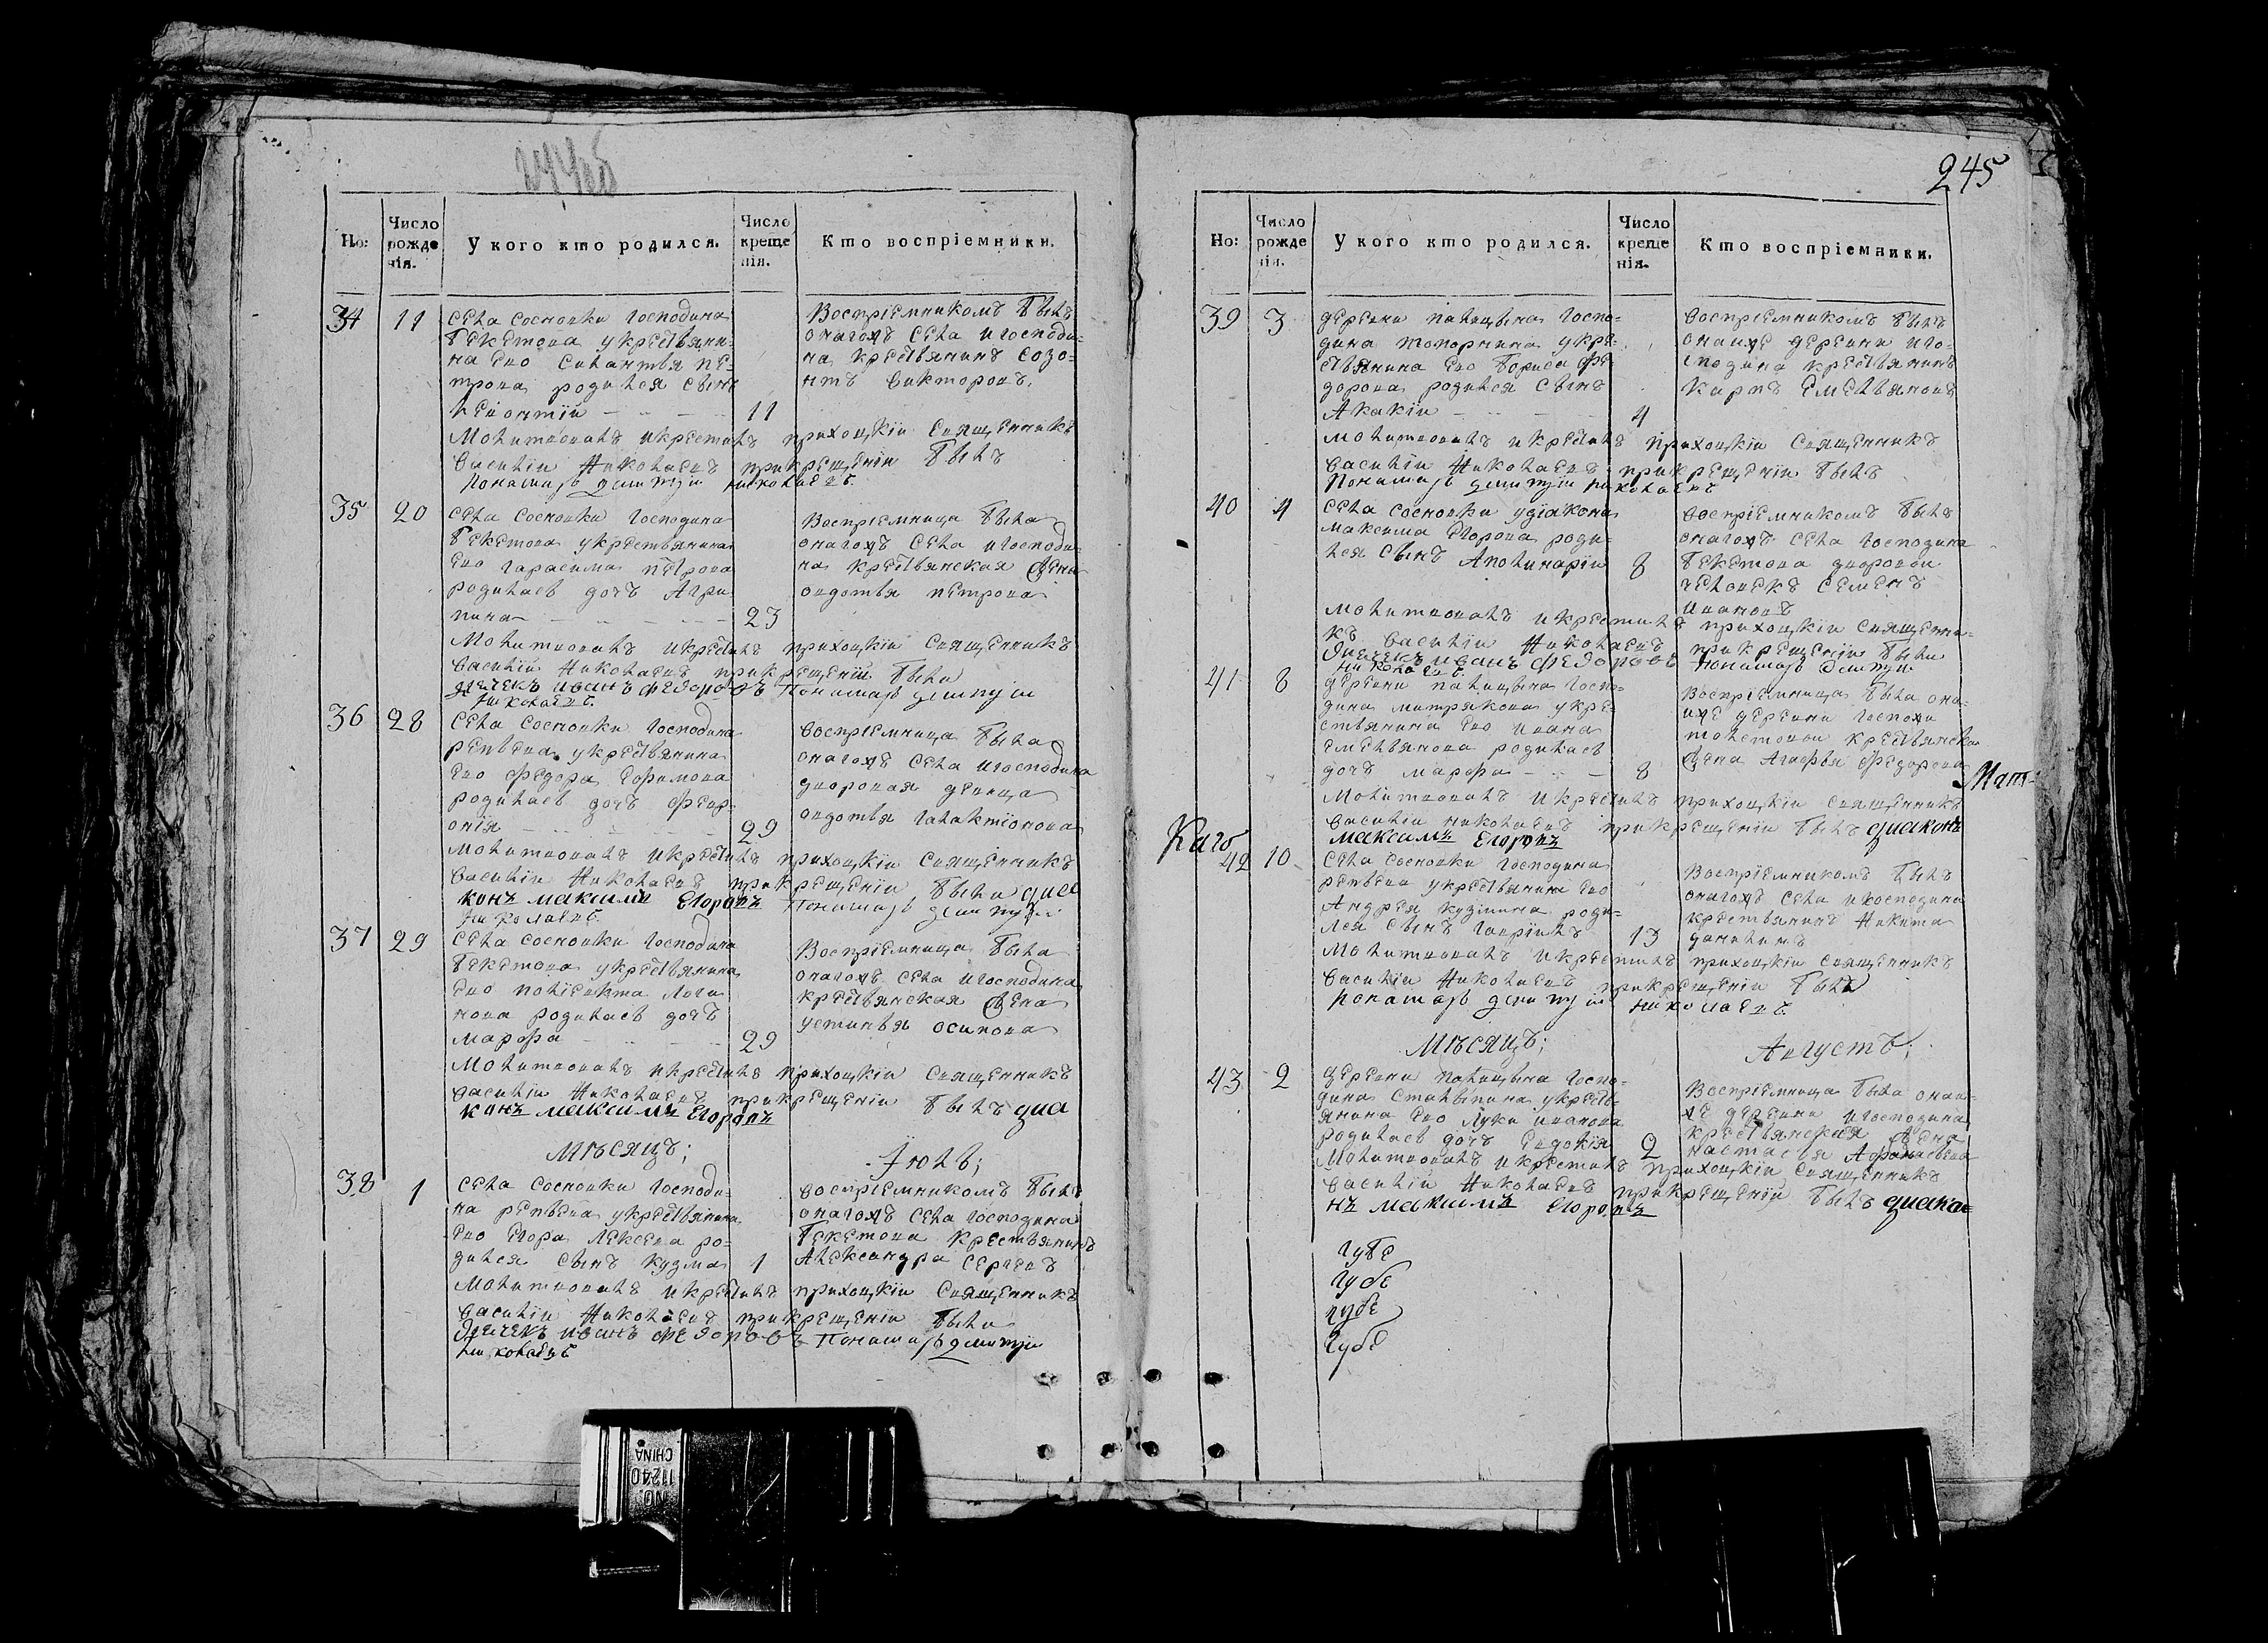 245
Но:
Число рожде нія.
У кого кто родился.
Число креще нія.
Кто воспріемники.
34
11
села сосновки господина
бекетова укрестьяни-
на ево силантья пе-
трова родился сынъ
леонтіи
11
Воспріемникомъ былъ
оногожъ села игосподи-
на крестьянинъ созо-
нтъ викторовъ.
Молитвовалъ икрестилъ приходскіи священникъ
василіи Николаевъ прикрещеніи былъ
Пономарь дмитріи николаевъ
35
20
села сосновки господина
бекетова укрестьянина
ево гарасима петрова
родилась дочъ Агри
пина
23
Воспріемница была
оногожъ села игосподи
на крестьянская жена
овдотья петрова
Молитвовалъ икрестилъ приходскіи священникъ
василіи Николаевъ прикрещеніи были
дьячекъ иванъ федоровъ Пономарь дмитріи
николаевъ
36
28
села сосновки господина
репьева укрестьянина
ево федора ефимова
родилась дочъ февр-
онія
29
воспріемница была
оногожъ села игосподина
дворовая девица
овдотья галактіонова
Молитвовалъ икрестилъ приходскіи священникъ
василіи Николаевъ прикрещеніи были диа
конъ максимъ Егоровъ Пономарь дмитріи
николаевъ
37
29
села сосновки господина
бекетова укрестьянина
ево поліекта логи
нова родилась дочъ
марфа
29
Воспріемница была
оногожъ села игосподина
крестьянская жена
устинья осипова
Молитвовалъ икрестилъ приходскіи священникъ
василіи Николаевъ прикрещеніи былъ диа
конъ максимъ Егоровъ
Мѣсяцъ;
Іюль;
38
1
села сосновки господи-
на репьева укрестьянина
ево Егора лексеева ро-
дился сынъ кузма
1
воспріемникомъ былъ
оногожъ села господина
бекетова крестьянинъ
Александра сергеевъ
Молитвовалъ икрестилъ приходскіи священникъ
василіи Николаевъ прикрещеніи были
дьячекъ иванъ федоровъ Пономарь дмитріи
николаевъ
Но:
Число рожде нія.
У кого кто родился.
Число креще нія.
Кто воспріемники.
39
3
деревни палицына госпо-
дина топорнина укре-
стьянина ево бориса фе-
дорова родился сынъ
Акакіи
4
воспріемникомъ былъ
оноиже деревни иго-
сподина крестьянинъ
карпъ Емельяновъ
Молитвовалъ икрестилъ приходскіи священникъ
василіи Николаевъ прикрещеніи былъ
Пономарь дмитріи николаевъ
40
4
села сосновки удіакона
максима Егорова роди-
лся сынъ Аполинаріи
8
воспріемникомъ былъ
оногожъ села господина
бекетова дворовои
человекъ семенъ
ивановъ
молитвовалъ икрестилъ приходскіи священни-
къ василіи Николаевъ прикрещеніи были
дьячекъ иванъ федоровъ пономарь дмитріи
николаевъ
41
8
деревни палицына госпо-
дина митрякова укре-
стьянина ево ивана
емельянова родилась
дочъ марфа
8
воспріемница была оно-
иже деревни госпожи
крестьянска
жена Агафья федорова
Молитвовалъ икрестилъ приходскіи священникъ
василіи николаевъ прикрещеніи былъ диаконъ
максимъ Егоровъ
42
10
села сосновки господина
репьева укрестьянина ево
Андрея кузмина роди-
лся сынъ гавріилъ
13
Воспріемникомъ былъ
оногожъ села игосподина
крестьянинъ Никита
данилинъ
Молитвовалъ икрестилъ приходскіи священникъ
василіи Николаевъ прикрещеніи былъ
пономарь дмитріи николаевъ
Мѣсяцъ;
Августъ;
43
2
деревни палицына госпо-
дина укресть
янина ево луки иванова
родилась дочъ Евдокія
2
Воспріемница была онои-
же деревни игосподина
крестьянская жена
настасья Афонасьева
Молитвовалъ икрестилъ приходскіи священникъ
василіи Николаевъ прикрещеніи былъ диако-
нъ максимъ Егоровъ